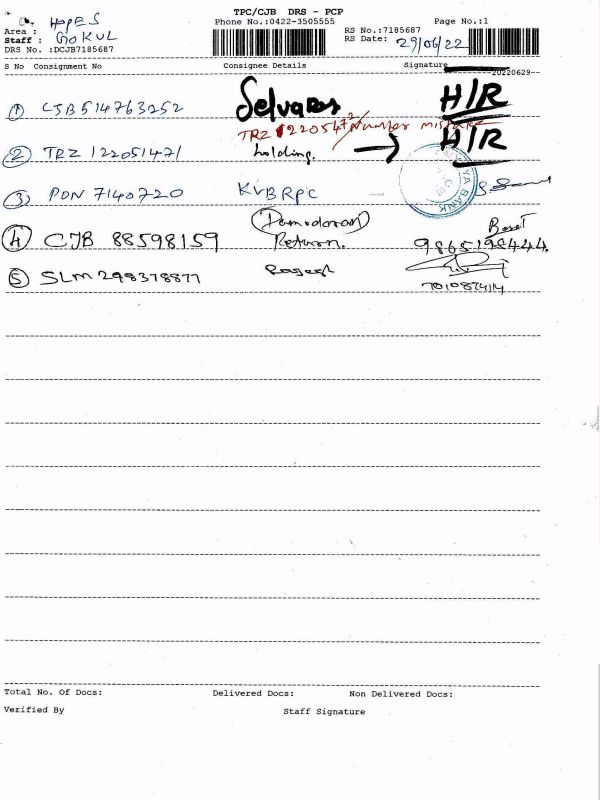 TPC/CJB DRS - PCP
Area : HOPES
Phone No.:0422-3505555
Page No.:1
Staff : GOKUL
RS No.:7185687
DRS No. :DCJB7185687
RS Date: 29/06/22
S No Consignment No Consignee Details Signature
--20220629--
① CJB514763252 Selvaraj H/R
TRZ 122051472/Number mistake
② TRZ 122051471 holding. → H/R
③ PDN 7140720 KVBRPC
YA BANK
(Damodaran)
④ CJB 88598159 Return. 9865198444.
⑤ SLM 298378877 Rajesh
7010874114
Total No. Of Docs: Delivered Docs: Non Delivered Docs:
Verified By Staff Signature